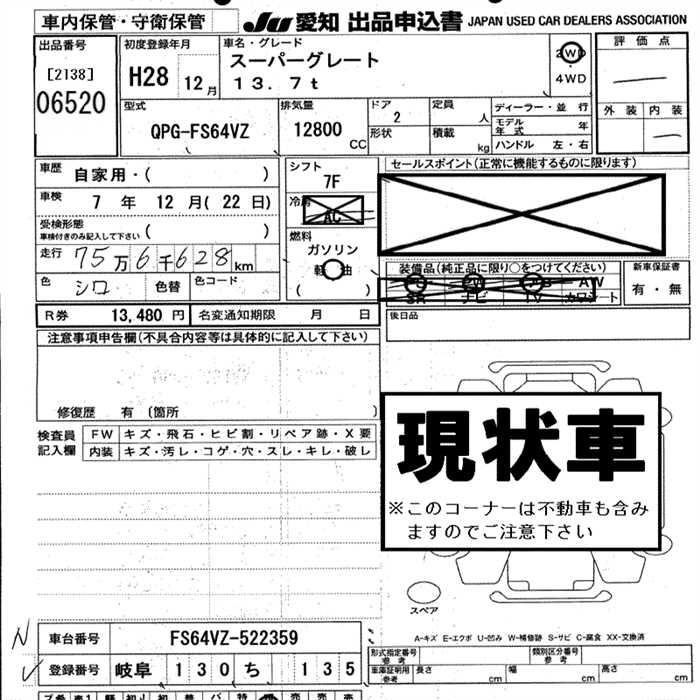 車内保管・守衛保管
JU 愛知 出品申込書 JAPAN USED CAR DEALERS ASSOCIATION
出品番号
[2138]
06520
初度登録年月
H28 12月
車名・グレード
スーパーグレート
13.7t
2WD
4WD
評価点
外装 内装
型式
QPG-FS64VZ
排気量
12800 CC
ドア
2
形状
定員
人
積載
kg
ディーラー・並行
モデル年式 年
ハンドル 左・右
車歴 自家用・( )
車検 7年 12月(22日)
受検形態
車検付きのみ記入して下さい ( )
走行 75万6千628km
色 シロ 色替 色コード
シフト
7F
冷房
AC
燃料
ガソリン
軽油
( )
セールスポイント(正常に機能するものに限ります)
装備品(純正品に限り○をつけてください)
PS PW AB AW
SR ナビ TV カワシート
新車保証書
有・無
後日品
R券 13,480円 名変通知期限 月 日
注意事項申告欄(不具合内容等は具体的に記入して下さい)
修復歴 有 〔箇所 〕
検査員記入欄
FW キズ・飛石・ヒビ割・リペア跡・X要
内装 キズ・汚レ・コゲ・穴・スレ・キレ・破レ
現状車
※このコーナーは不動車も含み
ますのでご注意下さい
スペア
A-キズ E-エクボ U-凹み W-補修跡 S-サビ C-腐食 XX-交換済
N
車台番号 FS64VZ-522359
登録番号 岐阜 130 ち 135
形式指定番号 参考
類別区分番号 参考
車庫証明用 参考 長さ cm 幅 cm 高さ cm